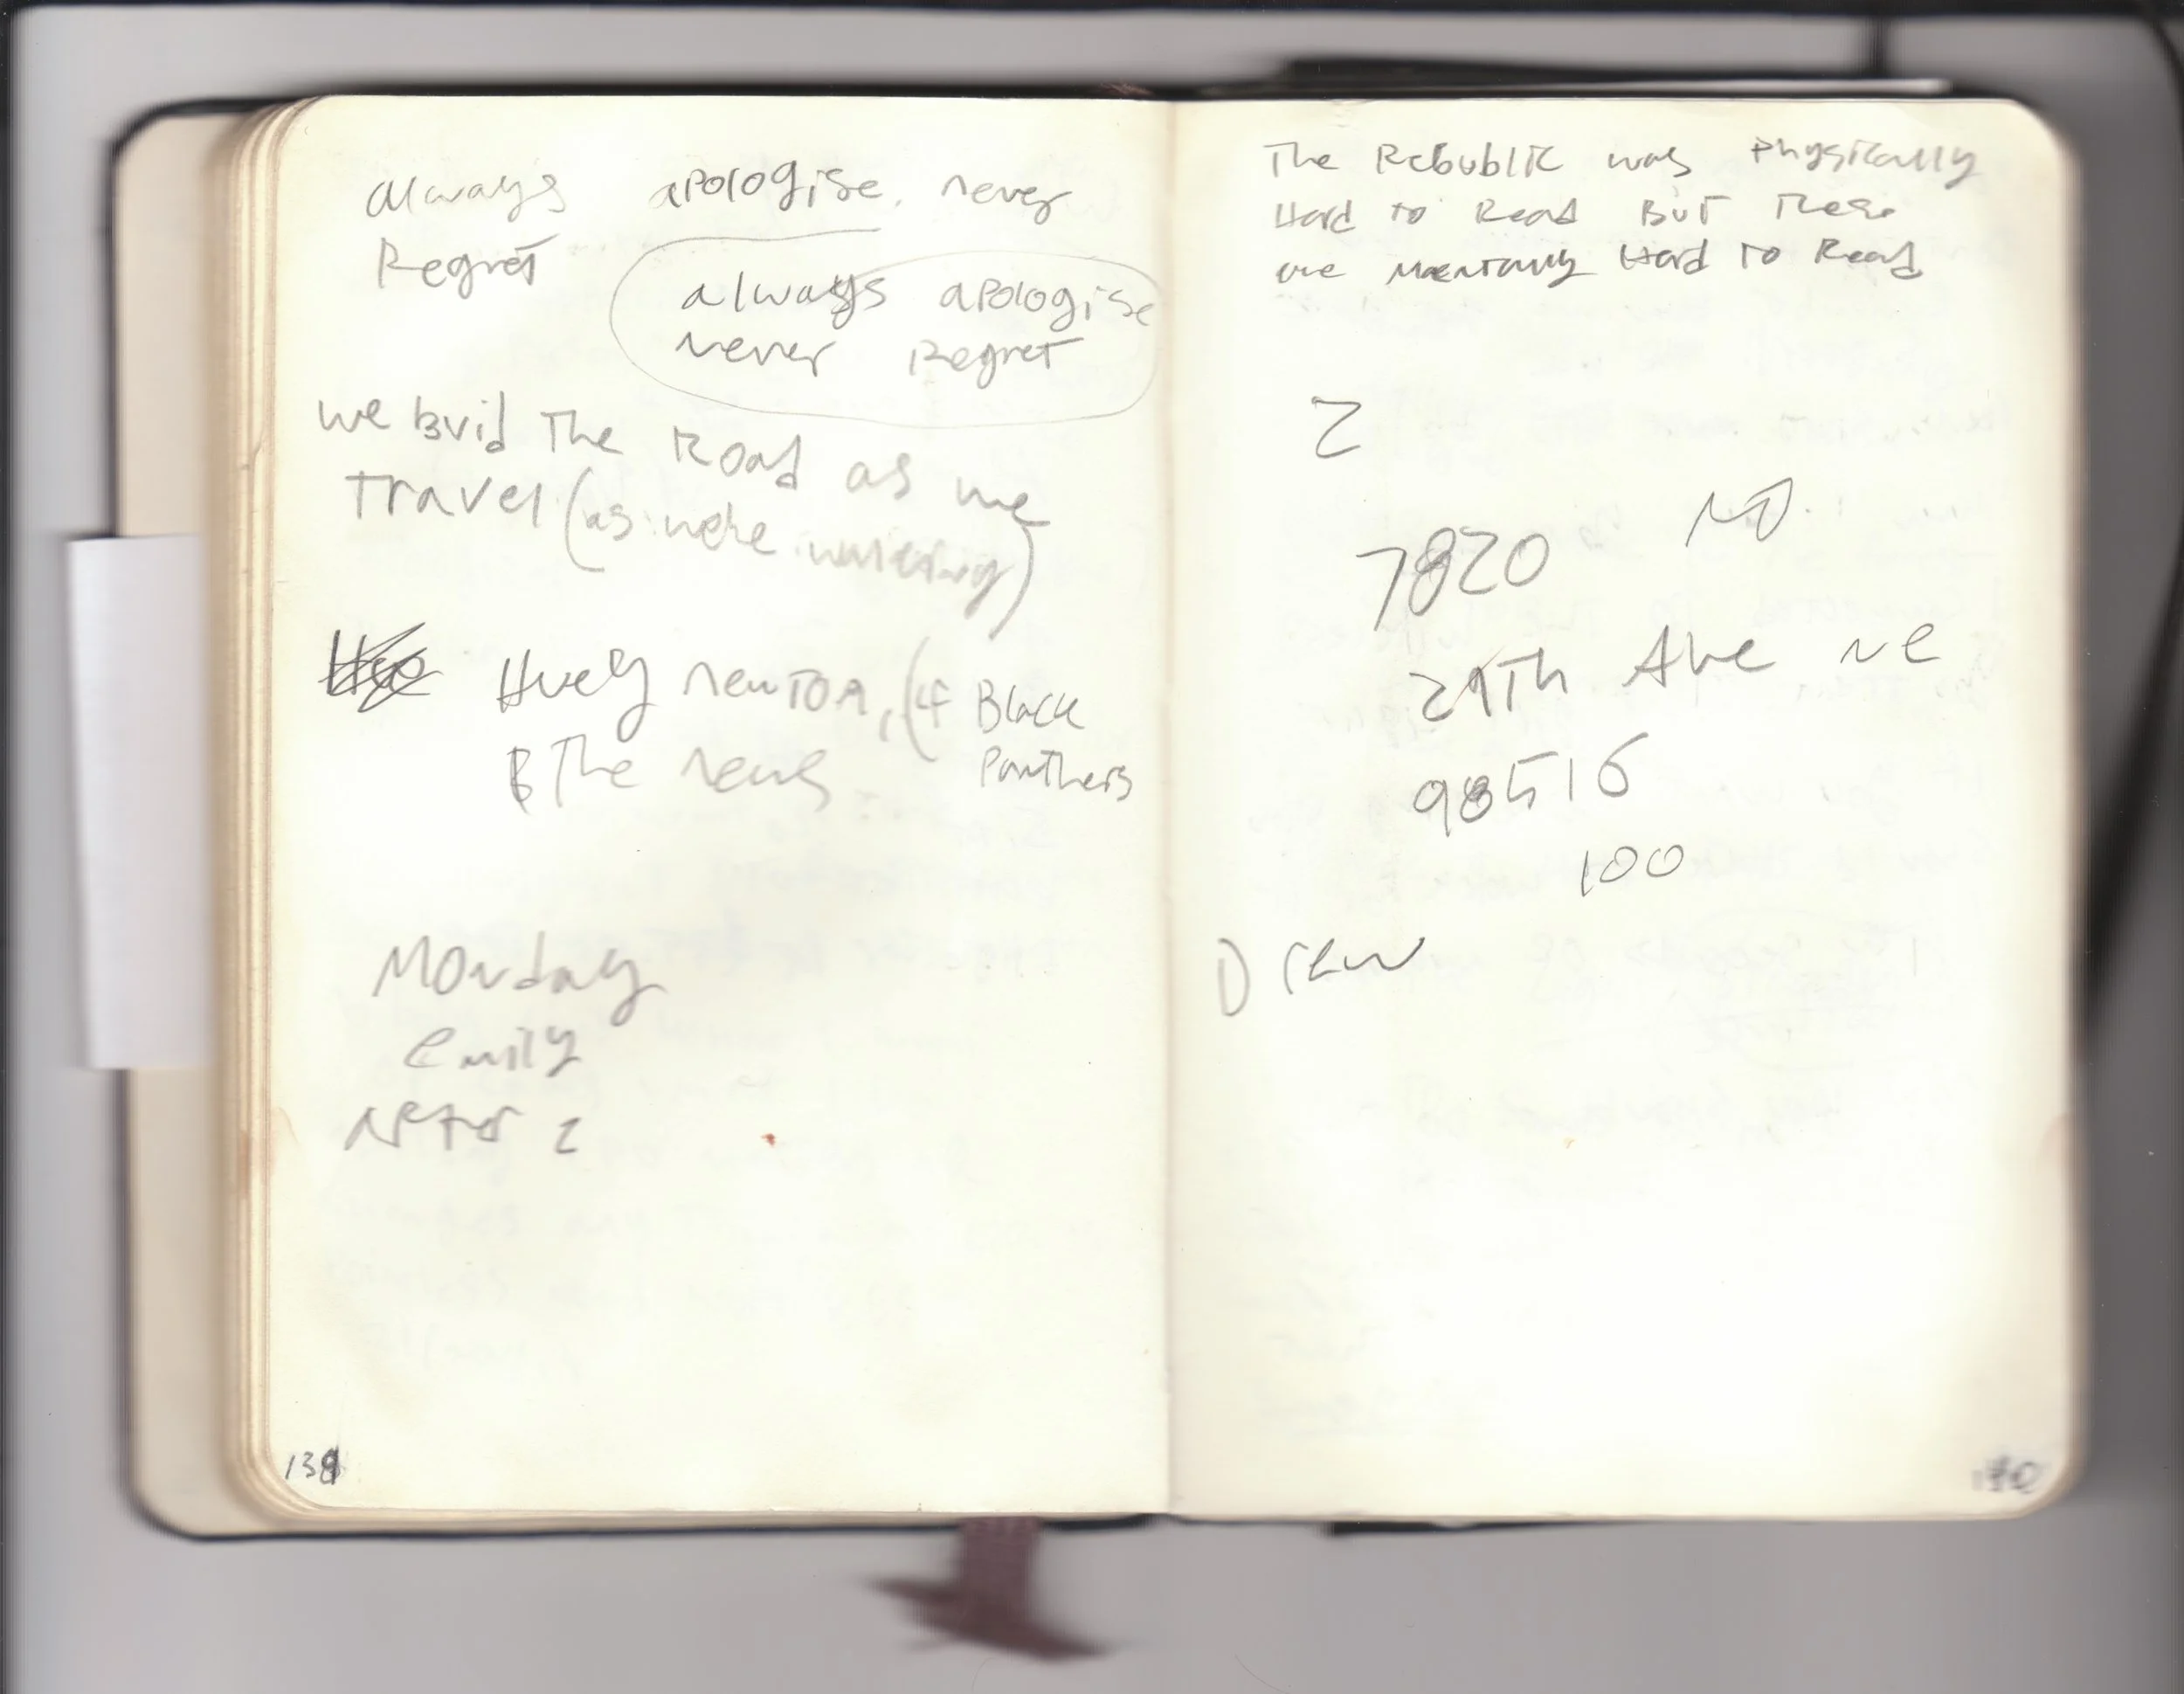 always apologise, never
Regret
always apologise
never Regret
we buid the Road as we
travel (as we're walking)
Huey newton, (4 Black
& The news Panthers
Monday
emily
after 2
139
The Rebublic was physically
Hard to Read But These
are mentally Hard to Read
2
NO.
7820
29Th Ave ne
98516
100
Drew
140